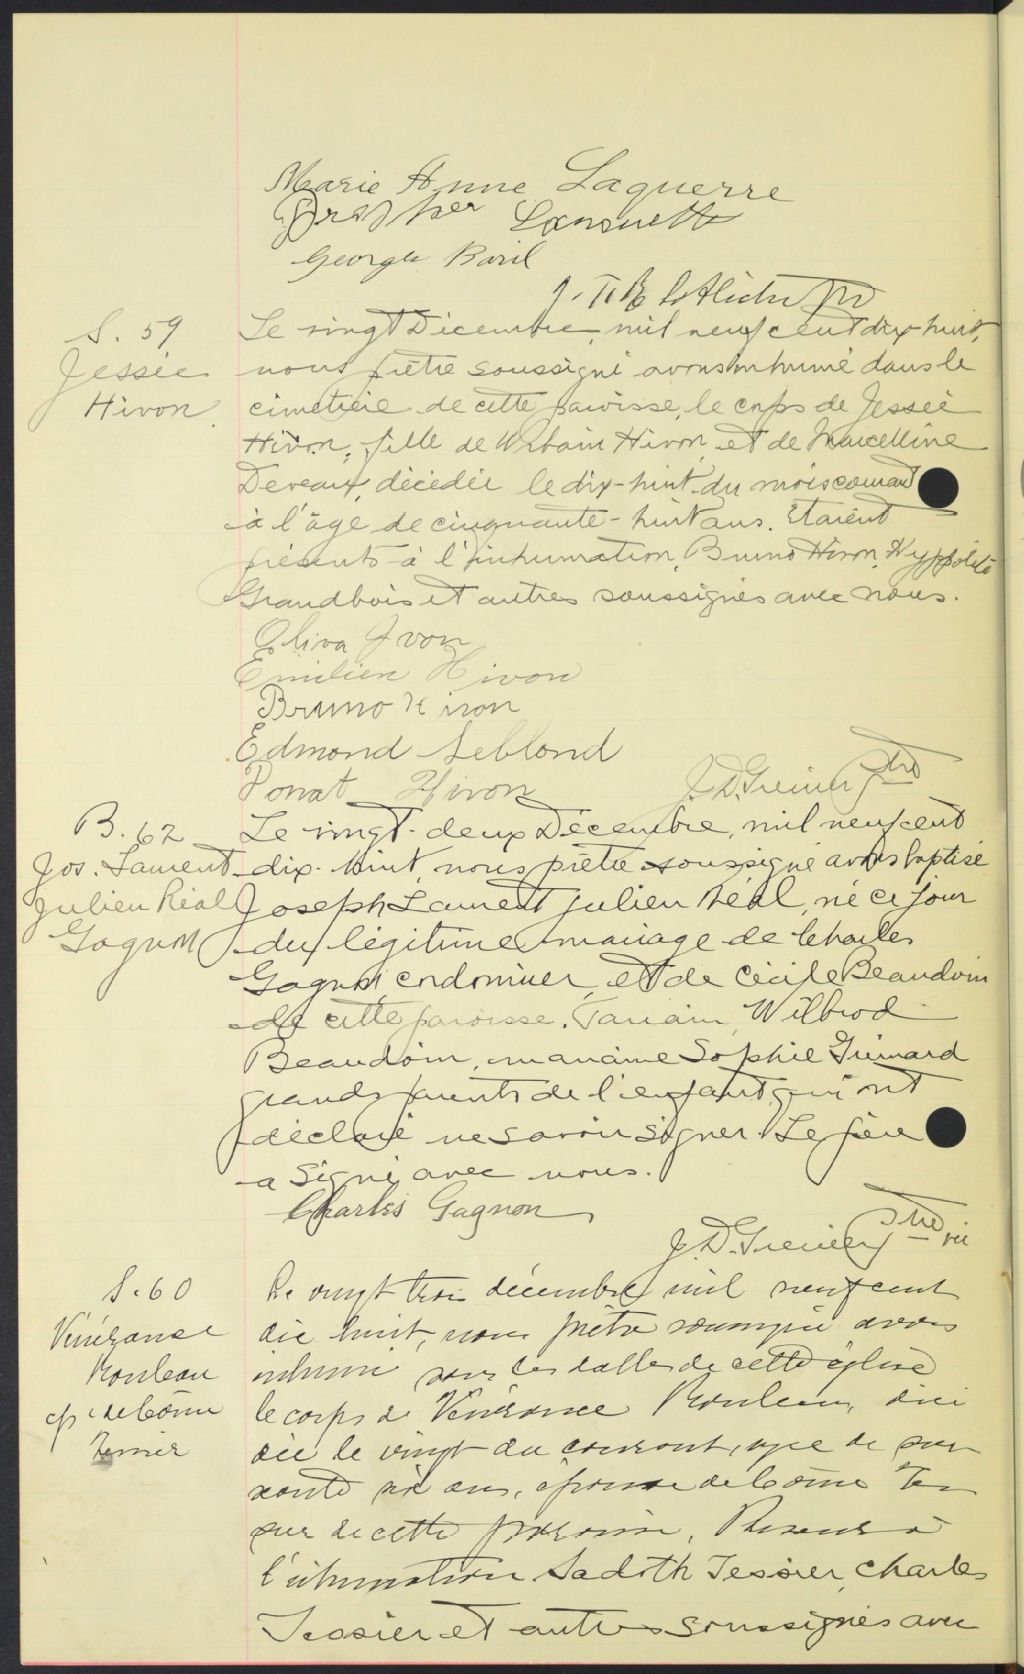 Marie Anne Laguerre
Prosper Lansuette
Georges Baril
J. Ptre
S. 59
Jessée
Hivon
Le vingt Décembre, mil neuf cent dix-huit,
nous prêtre soussigné avons inhumé dans le
cimetière de cette paroisse, le corps de Jessée
Hivon, fille de Urbain Hivon, et de Marcelline
Deveau, décédée le dix-huit du mois courant
à l'âge de cinquante-huit ans. Etaient
présents à l'inhumation, Bruno Hivon, Hyppolite
Grandbois et autres soussignés avec nous.
Oliva Ivon
Emilien Hivon
Bruno Hivon
Edmond Leblond
Donat Hivon
J. D. Grenier Ptre
B. 62
Jos. Laurent
Julien Réal
Gagnon
Le vingt-deux Décembre, mil neuf cent
dix-huit, nous prêtre soussigné avons baptisé
Joseph Laurent Julien Réal, né ce jour
du légitime mariage de Charles
Gagnon, cordonnier, et de Cécile Beaudoin
de cette paroisse. Parrain, Wilbrod
Beaudoin, marraine Sophie Guimard
grands parents de l'enfant, qui ont
déclaré ne savoir signer. Le père
a signé avec nous.
Charles Gagnon
J. D. Grenier Ptre vic
S. 60
Vénérance
Rouleau
épse de Côme
Tessier
Le vingt trois décembre mil neuf cent
dix huit, nous prêtre soussigné avons
inhumé sous les dalles de cette église
le corps de Vénérance Rouleau, décé
dée le vingt du courant, agée de soi
xante six ans, épouse de Côme Tes
sier de cette paroisse. Présents à
l'inhumation Sadoth Tessier, Charles
Tessier et autres soussignés avec